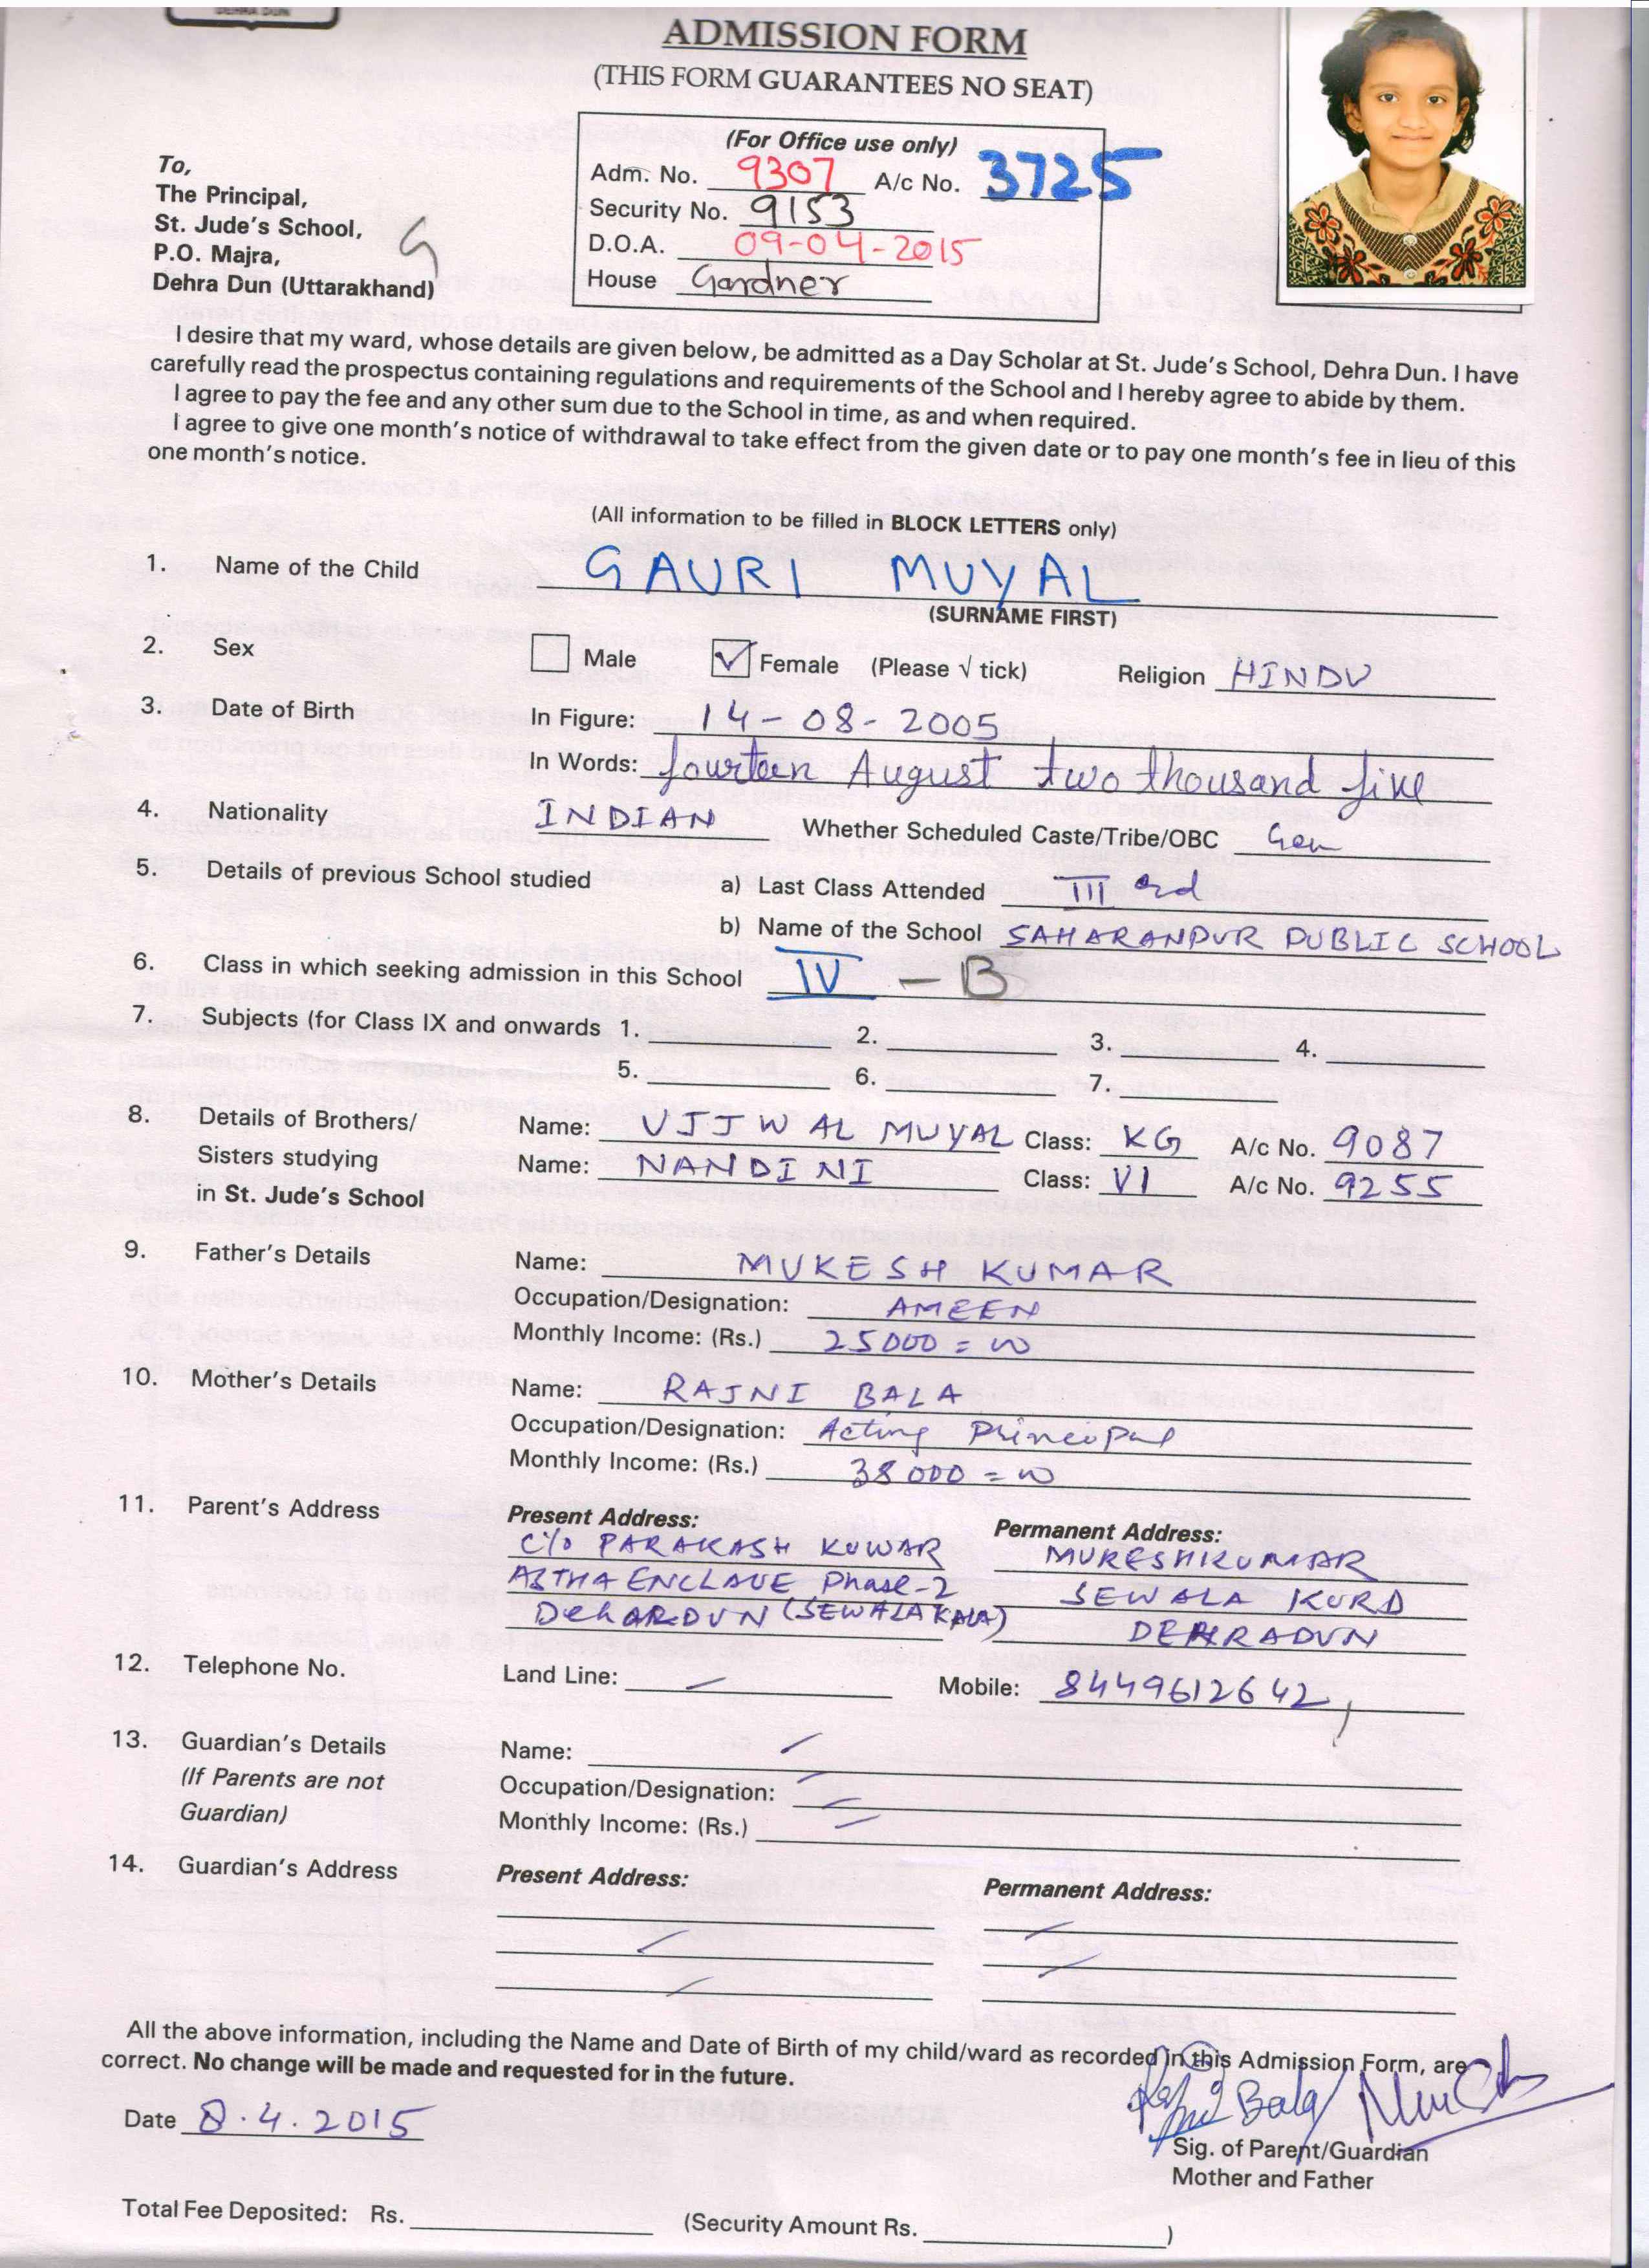 DEHRA DUN
ADMISSION FORM
(THIS FORM GUARANTEES NO SEAT)
(For Office use only)
Adm. No. 9307 A/c No. 3725
Security No. 9153
D.O.A. 09-04-2015
House Gardner
To,
The Principal,
St. Jude's School,
P.O. Majra,
Dehra Dun (Uttarakhand)
G
I desire that my ward, whose details are given below, be admitted as a Day Scholar at St. Jude's School, Dehra Dun. I have
carefully read the prospectus containing regulations and requirements of the School and I hereby agree to abide by them.
I agree to pay the fee and any other sum due to the School in time, as and when required.
I agree to give one month's notice of withdrawal to take effect from the given date or to pay one month's fee in lieu of this
one month's notice.
(All information to be filled in BLOCK LETTERS only)
1. Name of the Child GAURI MUYAL
(SURNAME FIRST)
2. Sex Male ✓ Female (Please √ tick) Religion HINDU
3. Date of Birth In Figure: 14-08-2005
In Words: fourteen August two thousand five
4. Nationality INDIAN Whether Scheduled Caste/Tribe/OBC Gen
5. Details of previous School studied a) Last Class Attended III rd
b) Name of the School SAHARANPUR PUBLIC SCHOOL
6. Class in which seeking admission in this School IV - B
7. Subjects (for Class IX and onwards 1. 2. 3. 4.
5. 6. 7.
8. Details of Brothers/ Name: UJJWAL MUYAL Class: KG A/c No. 9087
Sisters studying Name: NANDINI Class: VI A/c No. 9255
in St. Jude's School
9. Father's Details Name: MUKESH KUMAR
Occupation/Designation: AMEEN
Monthly Income: (Rs.) 25000=00
10. Mother's Details Name: RAJNI BALA
Occupation/Designation: Acting Principal
Monthly Income: (Rs.) 38000=00
11. Parent's Address Present Address: Permanent Address:
C/o PARAKASH KUWAR MUKESHKUMAR
ASTHA ENCLAVE Phase-2 SEWALA KURD
DehARDUN (SEWALA KALA) DEHRADUN
12. Telephone No. Land Line: — Mobile: 8449612642,
13. Guardian's Details Name:
(If Parents are not Occupation/Designation:
Guardian) Monthly Income: (Rs.)
14. Guardian's Address Present Address: Permanent Address:
All the above information, including the Name and Date of Birth of my child/ward as recorded in this Admission Form, are
correct. No change will be made and requested for in the future.
Date 8.4.2015 Rajni Bala
Sig. of Parent/Guardian
Mother and Father
Total Fee Deposited: Rs. (Security Amount Rs. )